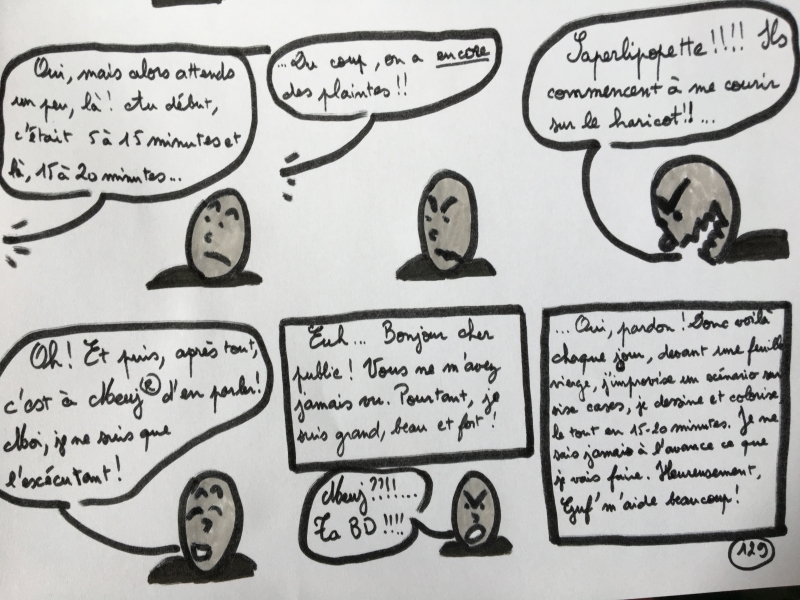 Oui, mais alors attends
un peu, là! Au début,
c'était 5 à 15 minutes et
là, 15 à 20 minutes...
...Du coup, on a encore
des plaintes!!
Saperlipopette!!!! Ils
commencent à me courir
sur le haricot!!...
Oh! Et puis, après tout,
c'est à Meuj® d'en parler!
Moi, je ne suis que
l'exécutant!
Euh... Bonjour cher
public! Vous ne m'avez
jamais vu. Pourtant, je
suis grand, beau et fort!
Meuj????!!...
Ta BD!!!!
...Oui, pardon! Donc voilà
chaque jour, devant une feuille
vierge, j'improvise un scénario sur
six cases, je dessine et colorise
le tout en 15-20 minutes. Je ne
sais jamais à l'avance ce que
je vais faire. Heureusement,
m'aide beaucoup!
129